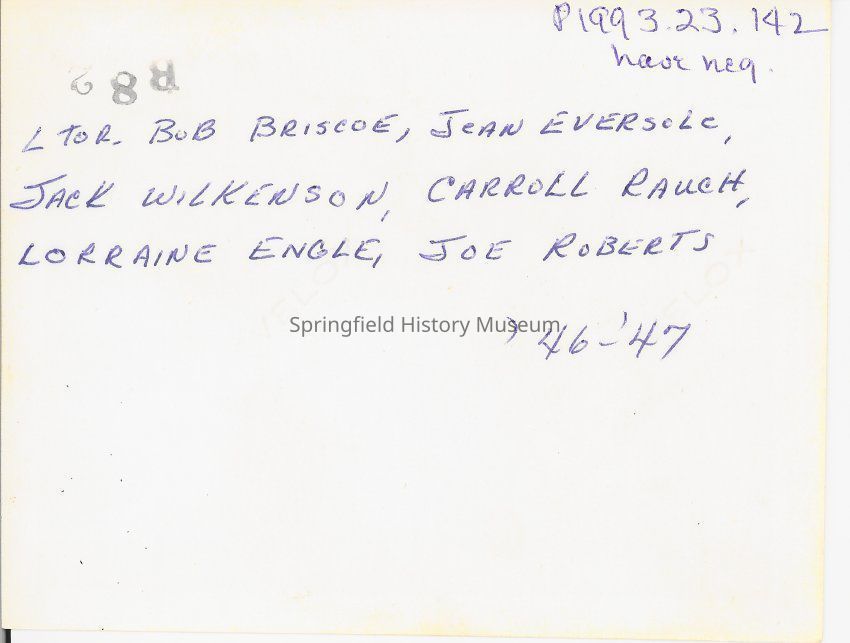 P1993.23.142
have neg.
R 8 2
L TOR. BOB BRISCOE, JEAN EVERSOLE,
JACK WILKENSON, CARROLL RAUCH,
LORRAINE ENGLE, JOE ROBERTS
Springfield History Museum
'46-'47
VELOX
VELOX